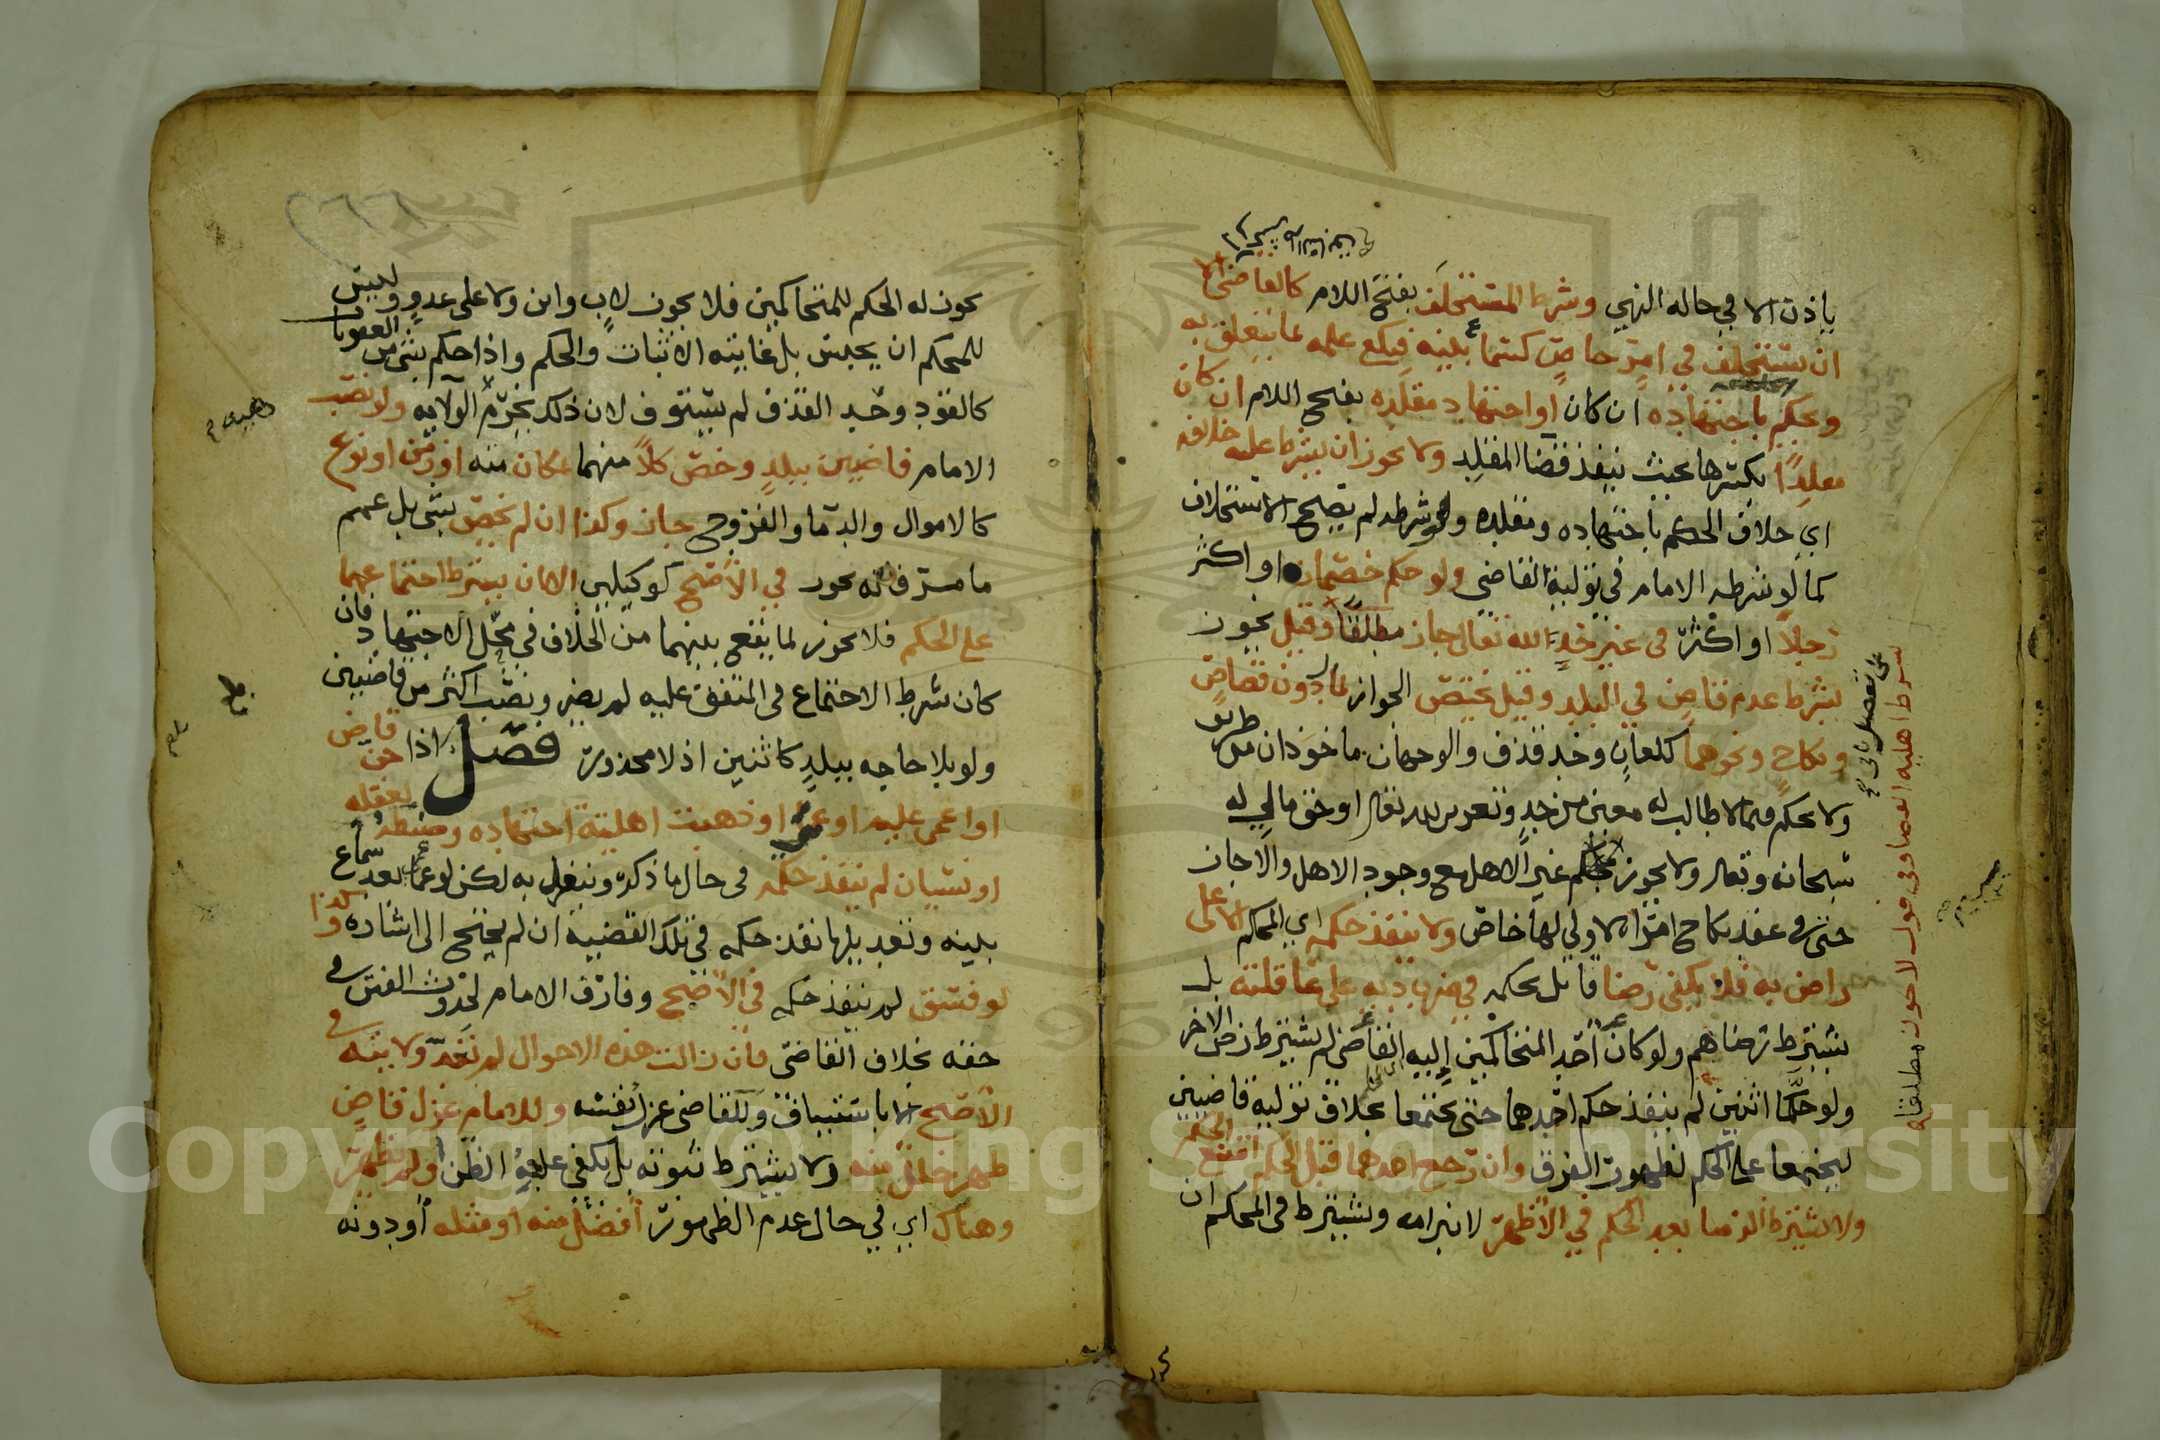 باذن الا في حاله النهي وشرط المستخلف بفتح اللام كالقاضي الا
ان يستخلف في امر خاص كسماع بينه فيكفي علمه بما يتعلق به
ويحكم باجتهاده ان كان او اجتهاد مقلده بفتح اللام ان كان
مقلدا بكسرها بحيث ينفذ قضا المقلد ولا يجوز ان يشرط عليه خلافه
اي خلاف الحكم باجتهاده ومقلده ولو شرطه لم يصح الاستخلاف
كما لو شرطه الامام في تولية القاضي ولو حكم خصمان او اكثر
رجلا او اكثر في غير حد الله تعالى جاز مطلقا وقيل يجوز
بشرط عدم قاض في البلد وقيل يختص الجواز بمال دون قصاص
ونكاح ونحوهما كلعان وحد قذف والوجهان ماخوذان من طريق
ولا يحكم فيما لا طالب له معين من حد وتعزير لله تعالى او حق مالي له
سبحانه وتعالى ولا يجوز تحكيم غير الاهل مع وجود الاهل والا جاز
حتى في عقد نكاح امراه لا ولي لها خاص ولا ينفذ حكمه اي المحكم الا على
راض به فلا يكفي رضا قاتل بحكمه في ضرب ديه على عاقلته بل
يشترط رضاهم ولو كان احد المتحاكمين اليه القاضي لم يشترط رضى الاخر
ولو حكما اثنين لم ينفذ حكم احدهما حتى يجتمعا بخلاف تولية قاضيين
ليجتمعا على الحكم لظهور الفرق وان رجع احدهما قبل الحكم امتنع الحكم
ولا يشترط الرضا بعد الحكم في الاظهر لانبرامه ويشترط في المحكم ان
يكون له الحكم للمتحاكمين فلا يجوز لاب وابن ولا على عدو وليس
للمحكم ان يحبس بل غايته الاثبات والحكم واذا حكم بشي من العقوبات
كالقود وحد القذف لم يستوف لان ذلك يخرم الولايه ولو نصب
الامام قاضيين ببلد وخص كلا منهما بمكان منه او زمن او نوع
كالاموال والدما والفروج جاز وكذا ان لم يخص بشي بل عمهم
في الاصح كوكيلين الا ان يشترط اجتماعهما
على الحكم فلا يجوز لما يقع بينهما من الخلاف في محل الاجتهاد فان
كان شرط الاجتماع في المتفق عليه لم يضر ونصب اكثر من قاضيين
ولو بلا حاجه ببلد كاثنين اذ لا محذور فصل اذا جن قاض
او اغمي عليه او عمي او ذهبت اهلية اجتهاده وضبطه لغفله
او نسيان لم ينفذ حكمه في حال ما ذكر وينعزل به لكن لو عمي بعد سماع
بينه وتعديلها نفذ حكمه في تلك القضية ان لم يحتج الى اشاره وكذا
لو فسق لم ينفذ حكمه في الاصح وفارق الامام لحدوث الفتن في
حقه بخلاف القاضي فان زالت هذه الاحوال لم تعد ولايته في
الاصح الا باستيناف وللقاضي عزل نفسه وللامام عزل قاض
ظهر خلل منه ولا يشترط ثبوته بل يكفي غلبة الظن او لم يظهر
وهناك اي في حال عدم الظهور افضل منه او مثله او دونه
شرط اهليه القضا وفي قول لا يجوز مطلقا